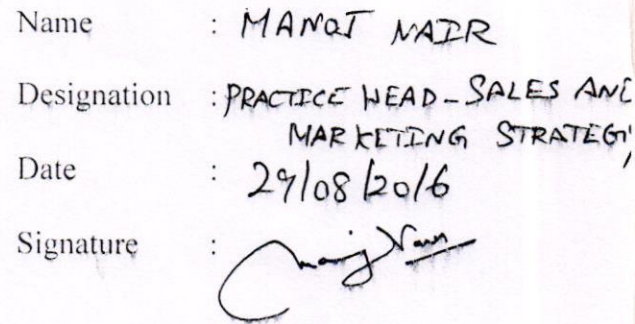 Name : MANOJ NAIR
Designation : PRACTICE HEAD - SALES AND
MARKETING STRATEGY
Date : 29/08/2016
Signature : Manoj Nair